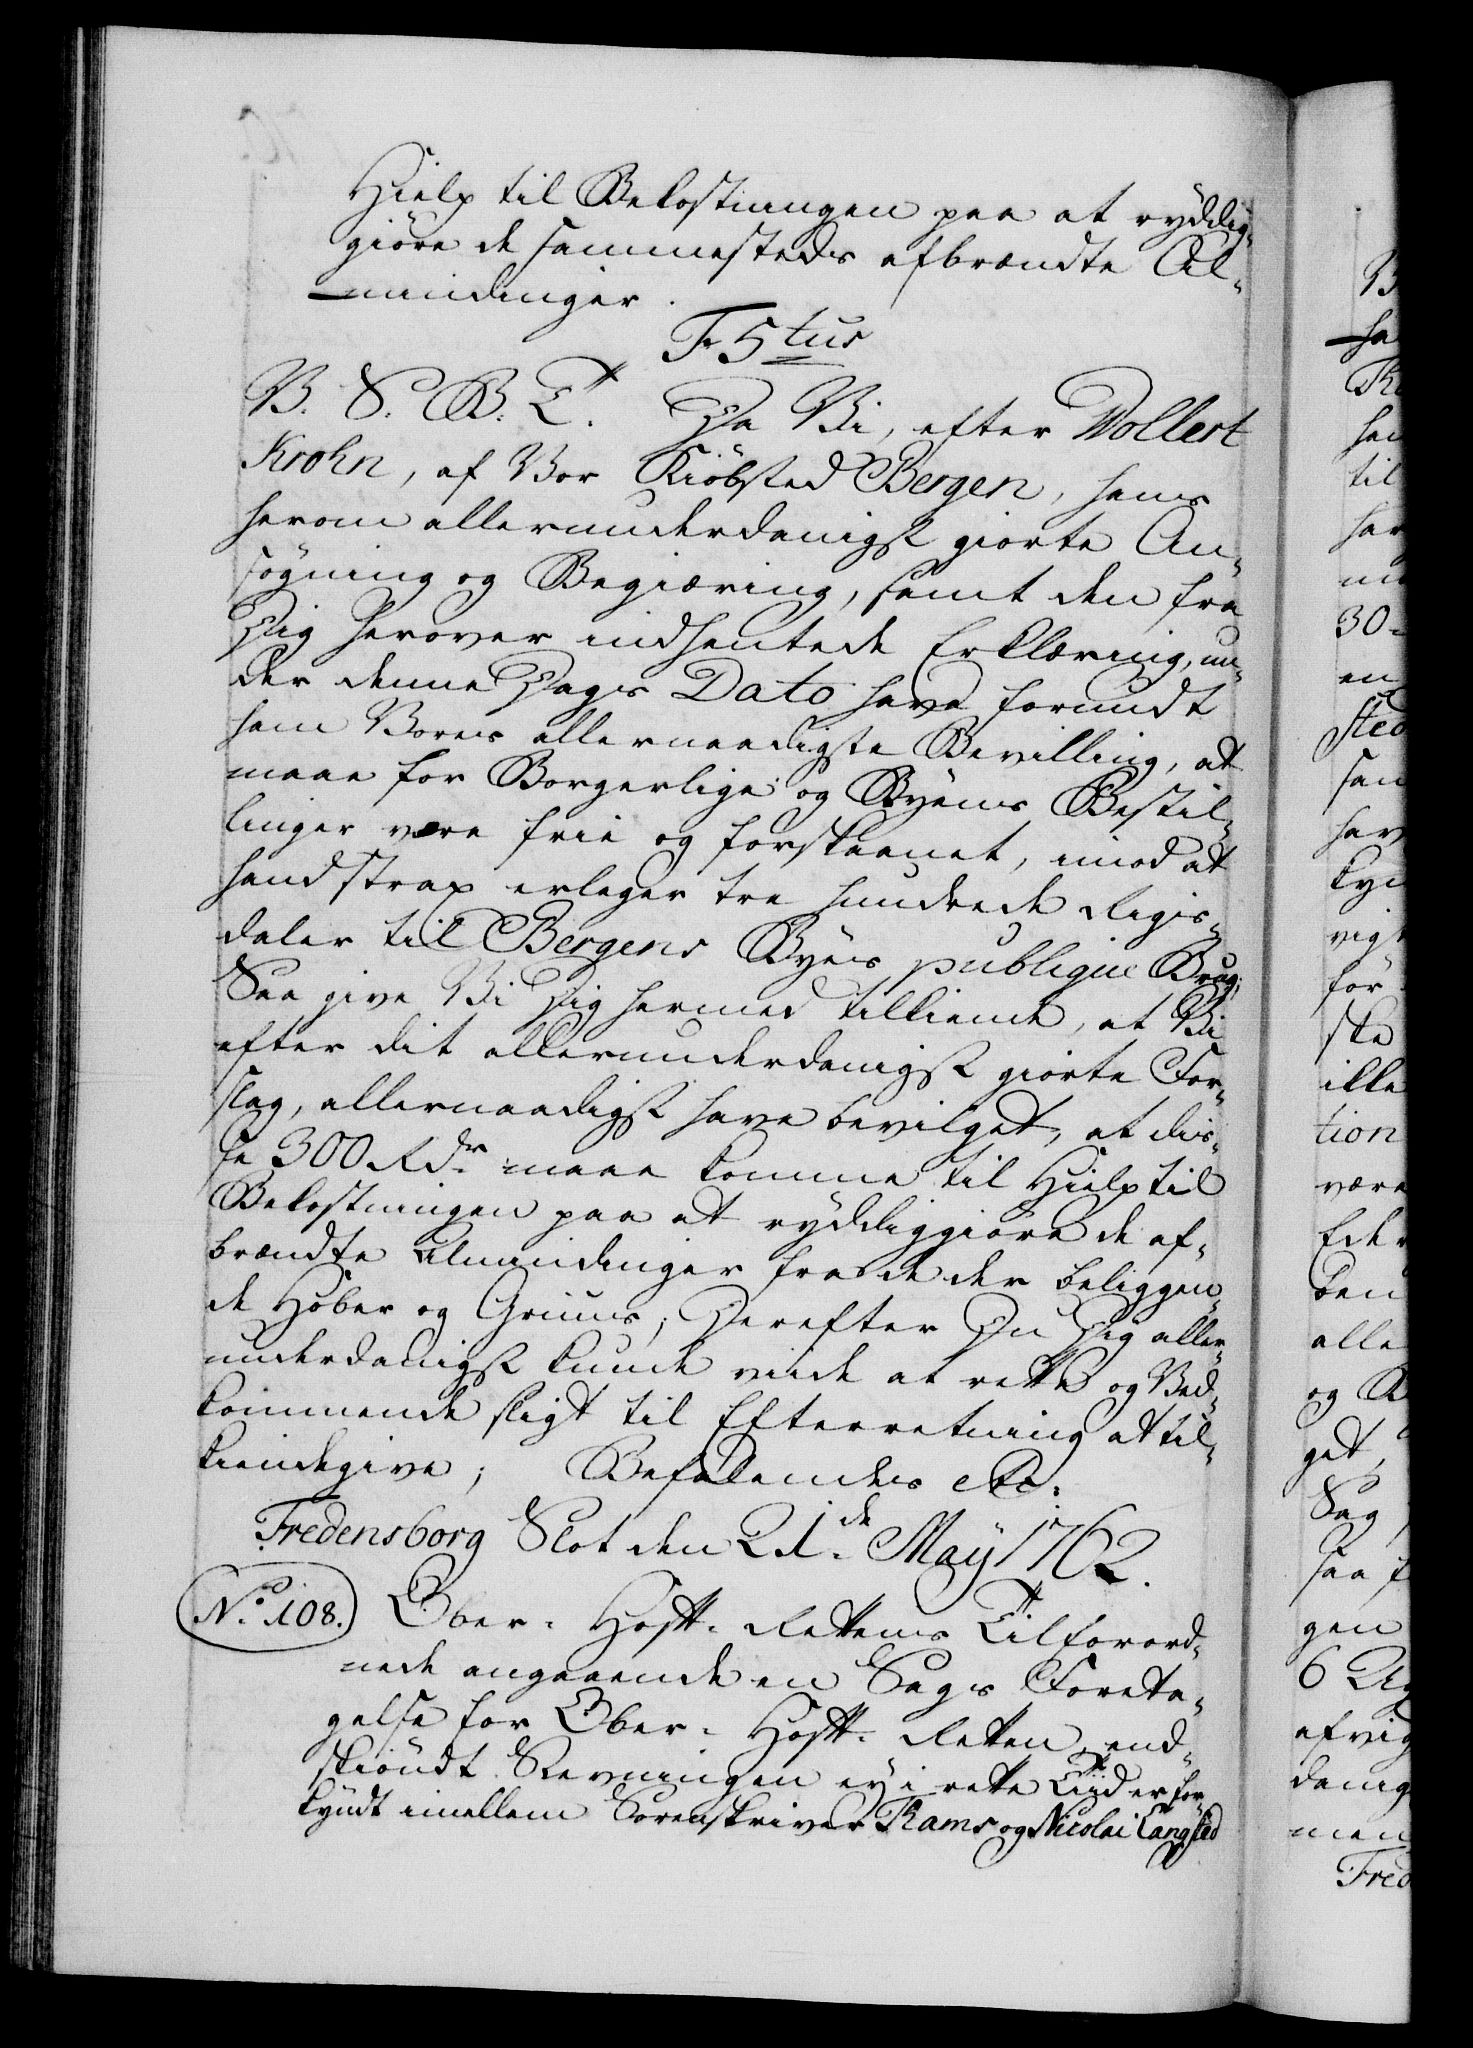 Hielp til Bekostningen paa at ryddig-
giöre de sammesteds afbrændte Al-
mindinger.
Fr 5tus
V. S. G. T. Da Vi, efter Wollert
Krohn, af Vor Kiöbsted Bergen, hans
herom allerunderdanigst giorte An-
søgning og Begiæring, samt den fra
Dig herover indhentede Erklæring, un-
der denne Dags Dato have forundt
ham Vores allernaadigste Bevilling, at
maae for Borgerlige og Byens Bestil-
linger være frie og forskaanet, imod at
hand strax erlæger tre hundrede Rigs-
daler til Bergens Byes publique Brug;
Saa give Vi Dig hermed tilkiende, at Vi
efter dit allerunderdanigst giorte For-
slag, allernaadigst have bevilget, at dis-
se 300 Rdr maae komme til Hielp til
Bekostningen paa at ryddiggiöre de af-
brændte Almindinger fra de der beliggen-
de Hober og Gruus; Derefter Du Dig aller-
underdanigst kunde vide at rette og Ved-
kommende sligt til Efterretning at til-
kiendegive; Befalendes etc.
Fredensborg Slot den 21de May 1762.
No. 108. Ober-Hoff-Rettens Tilforord-
nede angaaende en Sags Foreta-
gelse for Ober-Hoff-Retten, end-
skiöndt Stevningen ey i rette Tiid er for-
kyndt imellem Sorenskriver Rams og Nicolai Langsted